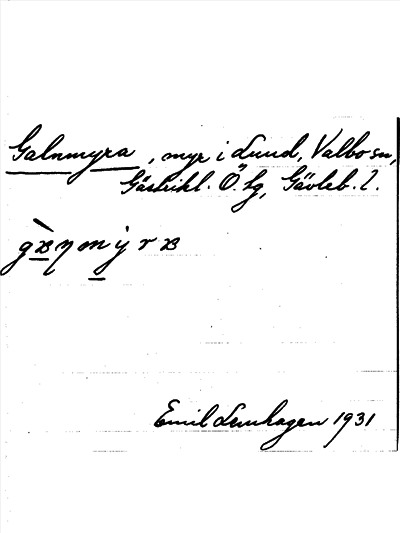 Galnmyra, myr i Lund, Valbo sn,
Gästrikl. Ö. tg, Gävleb. l.
gæŋmyræ
Emil Lenhagen 1931